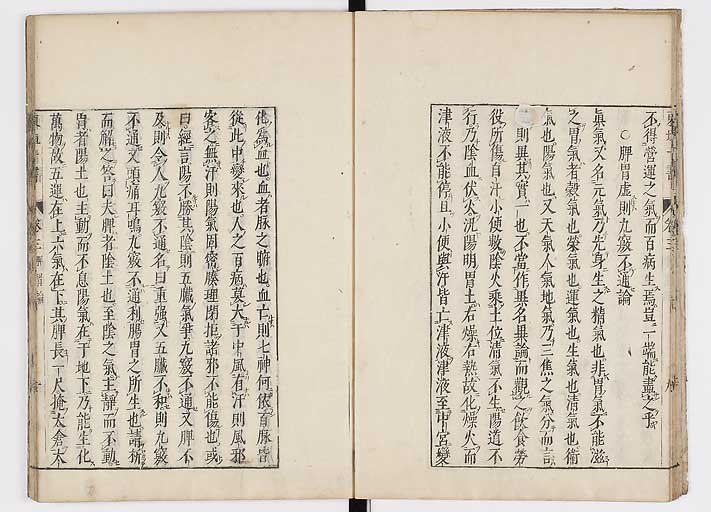 不得營運之氣而百病生焉豈一端能盡之乎
○脾胃虛則九竅不通論
眞氣又名元氣乃先身生之精氣也非胃氣不能滋
之胃氣者穀氣也榮氣也運氣也生氣也清氣也衛
氣也陽氣也又天氣人氣地氣乃三焦之氣分而言
之則異其實一也不當作異名異論而觀之飲食勞
役所傷自汗小便數陰火乘土位清氣不生陽道不
行乃陰血伏火况陽明胃土右燥右熱故化燥火而
津液不能停且小便與汗皆亡津液津液至中宮變
化爲血也血者脉之腑也血亡則七神何依百脉皆
從此中變來也人之百病莫大于中風有汗則風邪
客之無汗則陽氣固密腠理閉拒諸邪不能傷也或
曰經言陽不勝其陰則五臟氣爭九竅不通又脾不
及則令人九竅不通名曰重強又五臟不和則九竅
不通又頭痛耳鳴九竅不通利腸胃之所生也請析
而解之答曰夫脾者陰土也至陰之氣主靜而不動
胃者陽土也主動而不息陽氣在于地下乃能生化
萬物故五運在上六氣在下其脾長一尺掩太倉太